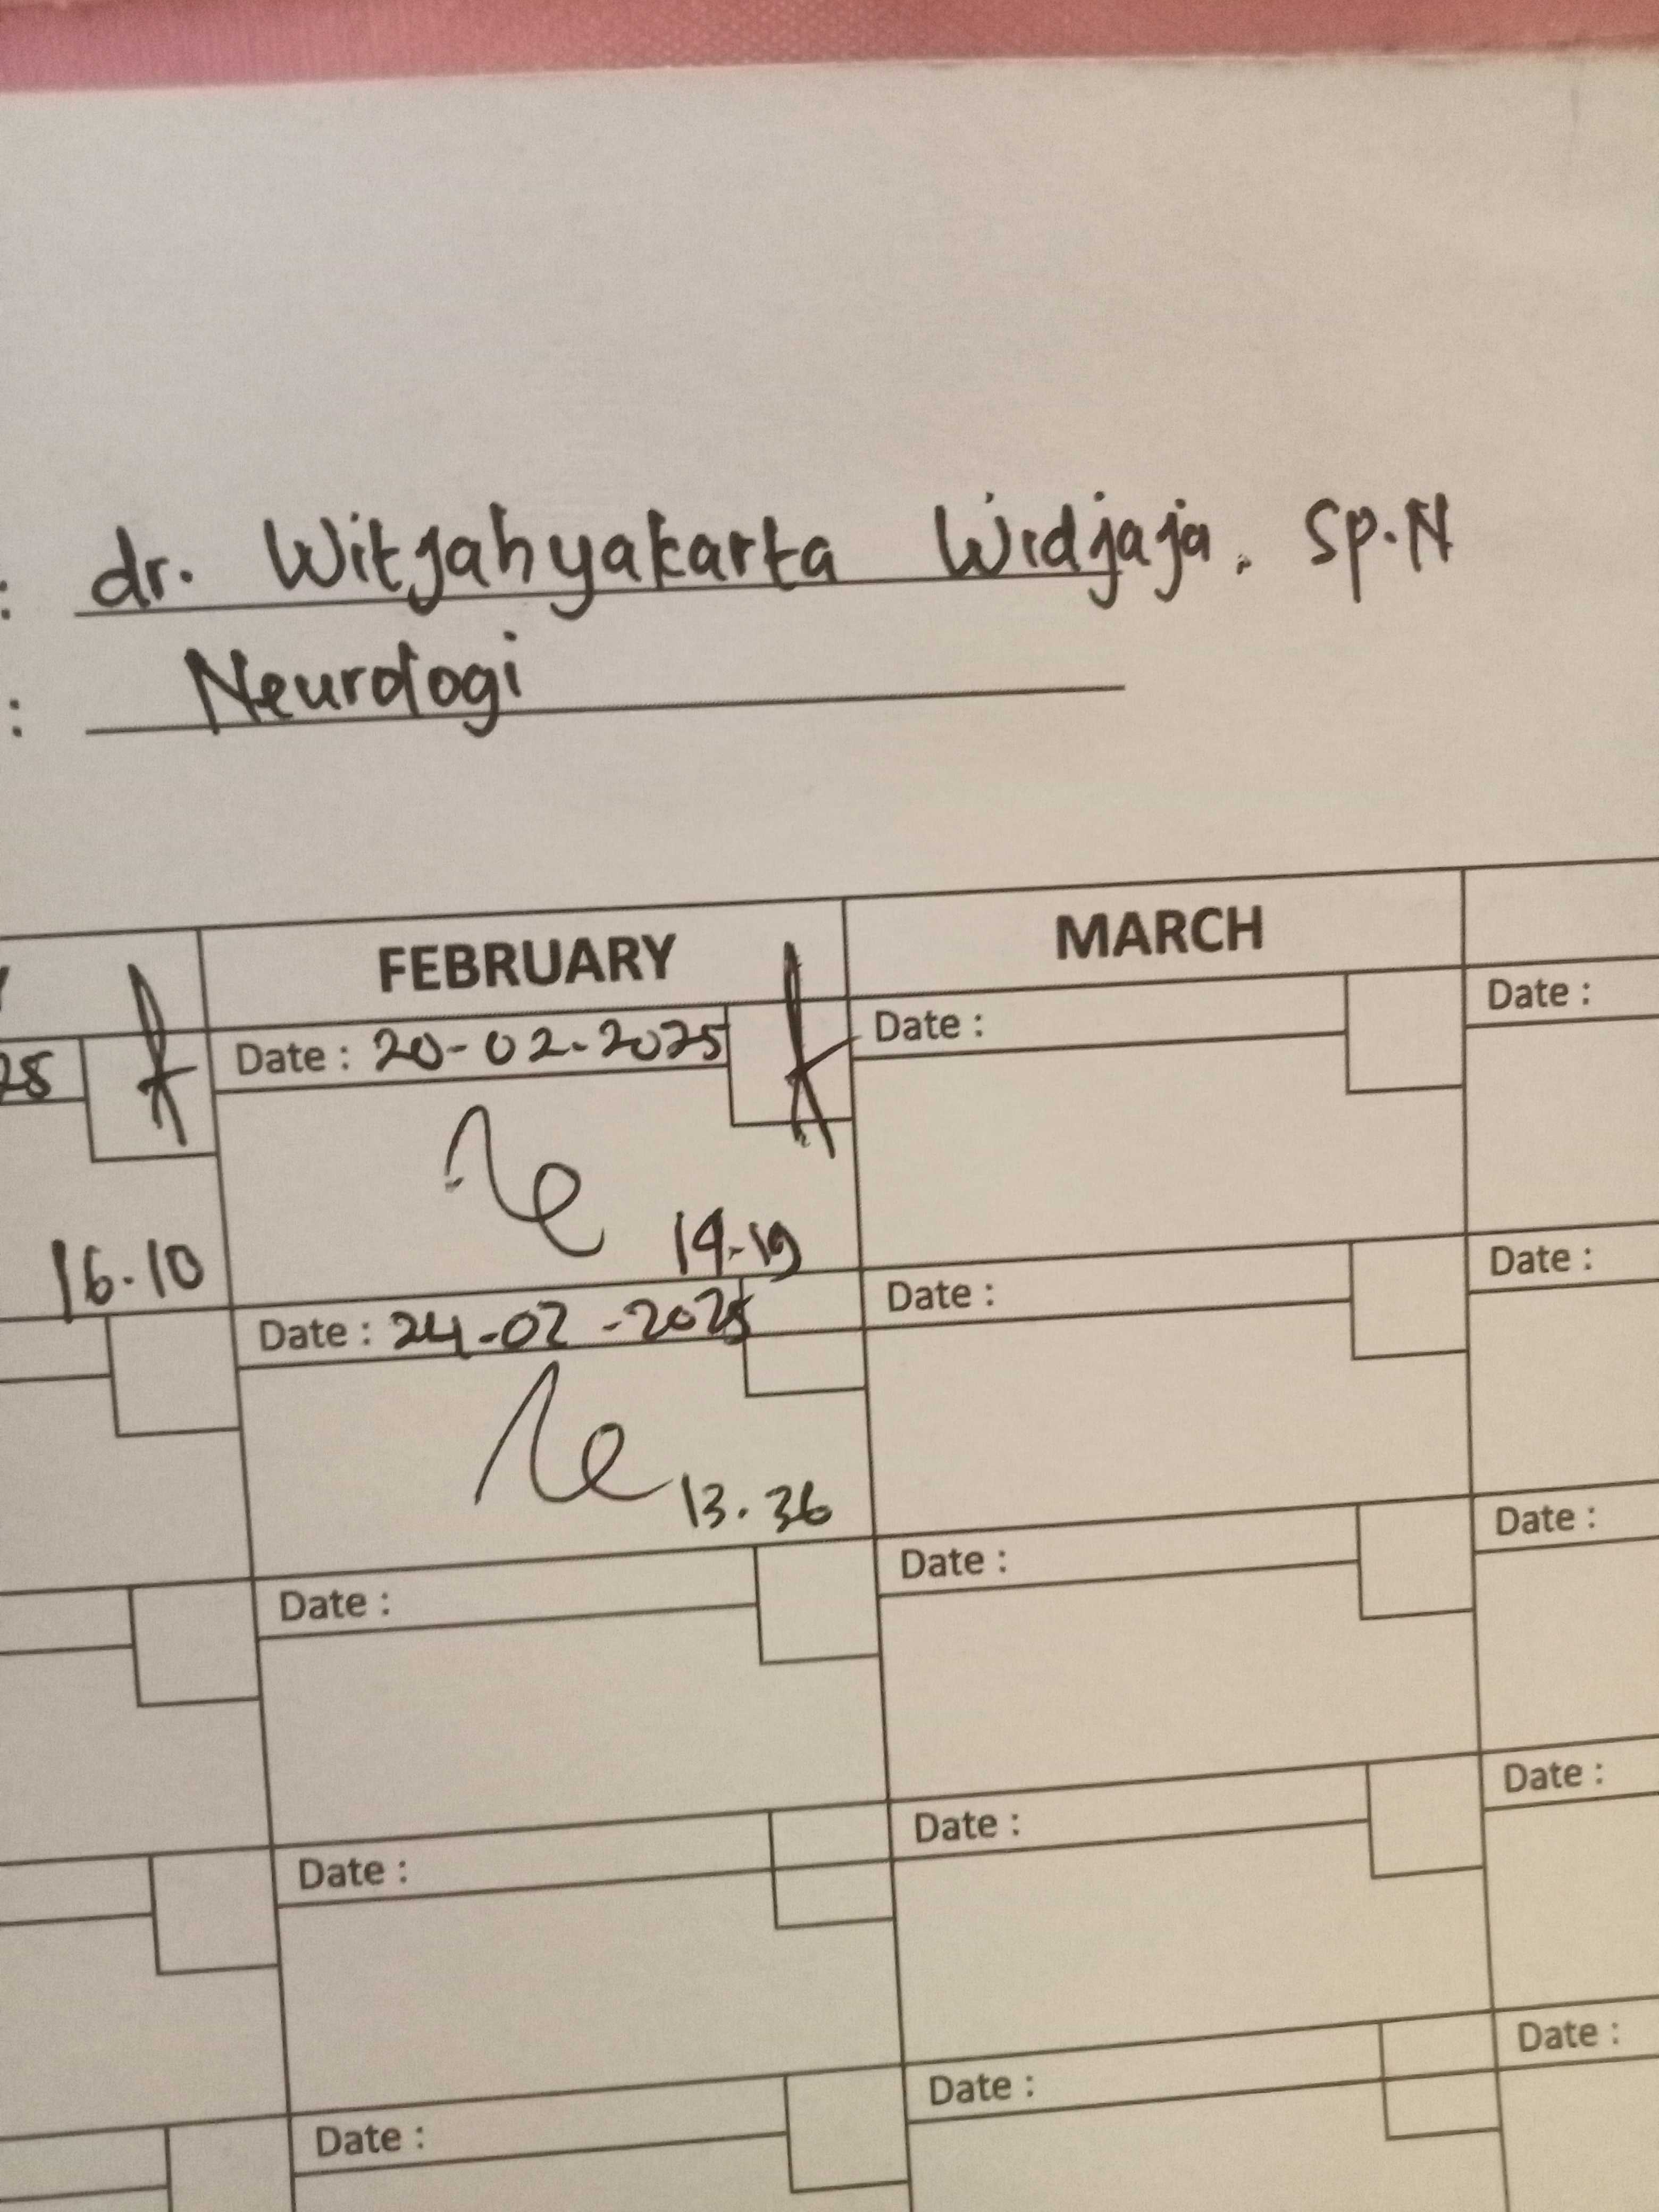 : dr. Witjahyakarta Widjaja, Sp.N
: Neurologi
FEBRUARY MARCH
Date : 20-02-2025 Date : Date :
16.10 14.19
Date : 24-02-2025 Date : Date :
13.36
Date : Date : Date :
Date : Date : Date :
Date : Date : Date :